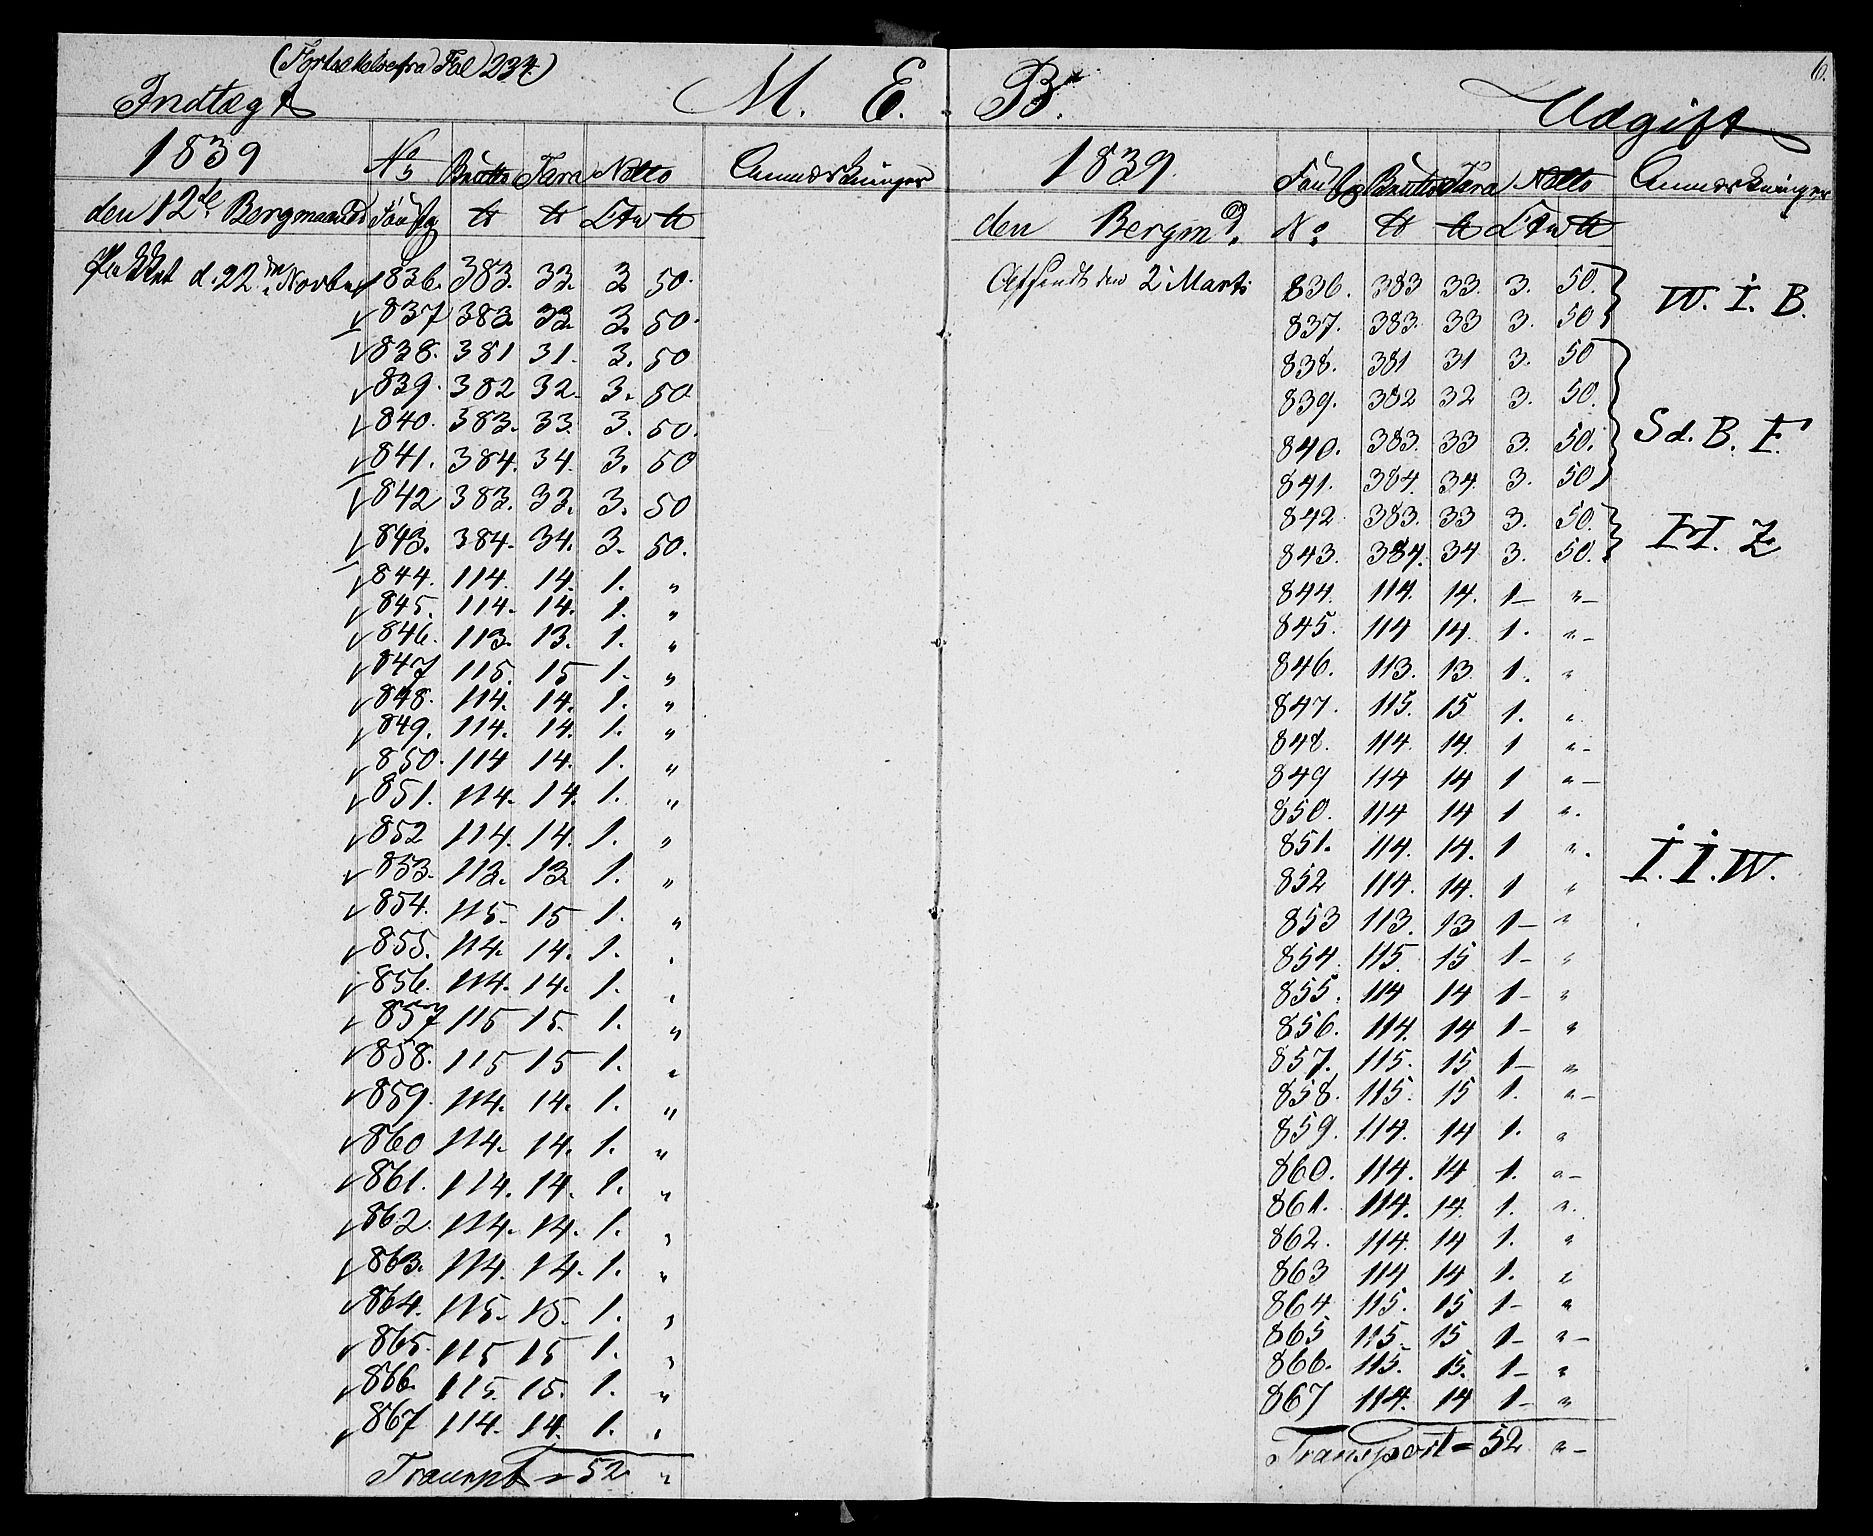 (Fortsættelse fra Fol 234)
Indtægt M. E. B. Udgift 6.
1839 No Brutto Tara Netto Anmærkninger
den 12de Bergmaaned Faustg ℔ ℔ Ctn ℔
Pakket d. 22 Novbr 836. 383. 33. 3 50.
837 383 33. 3. 50.
838. 381 31. 3. 50
839. 382 32. 3. 50
840. 383. 33. 3. 50.
841. 384. 34. 3. 50
842 383. 33. 3. 50
843. 384. 34. 3. 50.
844. 114. 14. 1. "
845. 114. 14. 1. "
846. 113. 13. 1. "
847 115. 15 1. "
848. 114. 14. 1. "
849. 114. 14. 1. "
850. 114 14. 1. "
851. 114. 14. 1. "
852 114. 14. 1. "
853. 113. 13 1. "
854. 115. 15 1. "
855. 114. 14. 1. "
856. 114. 14. 1. "
857 115 15. 1. "
858. 115 15 1. "
859. 114. 14. 1. "
860 114. 14. 1. "
861. 114. 14. 1. "
862. 114. 14. 1. "
863. 114. 14. 1. "
864. 115. 15. 1. "
865. 115 15 1. "
866. 115. 15. 1. "
867 114. 14. 1. "
Transpt = 52 "
1839. Faustg Brutto Tara Netto Anmærkninger
den Bergmd. No ℔ ℔ Ctn ℔
Afsendt den 2 Marts 836. 383 33. 3. 50. W. I. B.
837. 383. 33 3. 50
838. 381 31 3. 50
839. 382 32 3. 50.
840. 383. 33 3. 50. Sd. B. F.
841. 384. 34. 3. 50
842 383. 33 3. 50. H. Z
843. 384. 34 3. 50.
844. 114. 14. 1– "–
845. 114 14. 1. "–
846. 113. 13. 1. "
847. 115. 15 1. "
848. 114. 14. 1 "–
849 114 14 1 "–
850. 114 14 1 ".
851. 114. 14. 1 ". I. I. W.
852 114. 14. 1 "
853 113. 13 1– "
854. 115. 15 1– "
855. 114 14 1– "
856. 114. 14 1– "
857. 115. 15 1– "
858. 115. 15 1. "–
859. 114. 14 1. "
860. 114. 14 1. "–
861. 114. 14. 1. ".
862. 114. 14 1. "
863 114 14 1. "
864 115. 15 1– "
865 115. 15 1– "–
866. 115. 15. 1– "
867 114. 14 1– "
Transport = 52 "–